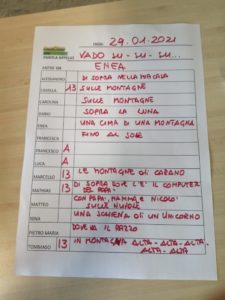 DATA: 29.01.2021
VADO SU - SU - SU...
ENEA
ALESSANDRO DI SOPRA NELLA MACCHINA
CAMILLA 13 SULLE MONTAGNE
CAROLINA SULLE MONTAGNE
DARIO SOPRA LA LUNA
ENEA UNA CIMA DI UNA MONTAGNA
FRANCESCA FINO AL SOLE
FRANCESCO A
LUCA A
MARCELLO 13 LE MONTAGNE di
MATHIAS 13 DI SOPRA DOVE C'È IL COMPUTER DEL PAPA'
MATTEO CON PAPA', MAMMA E NICOLO' SULLE NUVOLE
NINA UNA SCHIENA DI UN UNICORNO
PIETRO MARIA DOVE VA IL RAZZO
TOMMASO 13 IN MONTAGNA ALTA - ALTA - ALTA
ALTA - ALTA